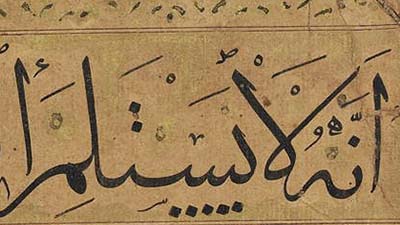 انّه لا يستلم أ